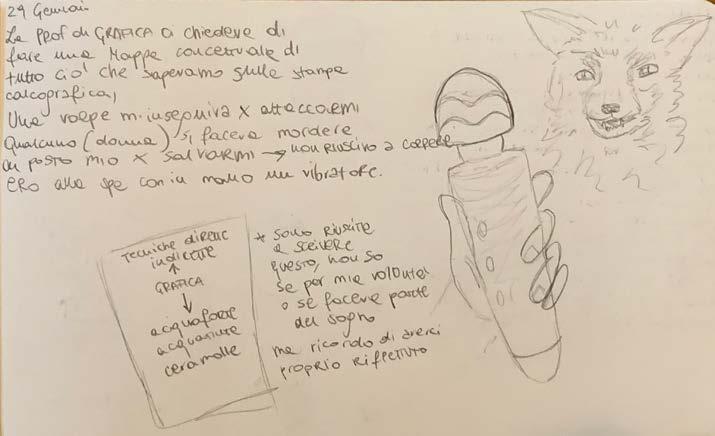 29 Gennaio
La Prof di GRAFICA ci chiedeva di
fare una Mappa concettuale di
tutto ciò che sapevamo sulla stampa
calcografica,
Una volpe m'inseguiva x attaccarmi
Qualcuno (donna) si faceva mordere
al posto mio x salvarmi → non riuscivo a capere
ero alla spe con in mano un vibratore.
Tecniche dirette
indirette
↑
GRAFICA
↓
acquaforte
acquatinta
ceramolle
* sono riuscita
a scrivere
questo, non so
se per mia volontà
o se faceva parte
del sogno
ma ricordo di averci
proprio riflettuto